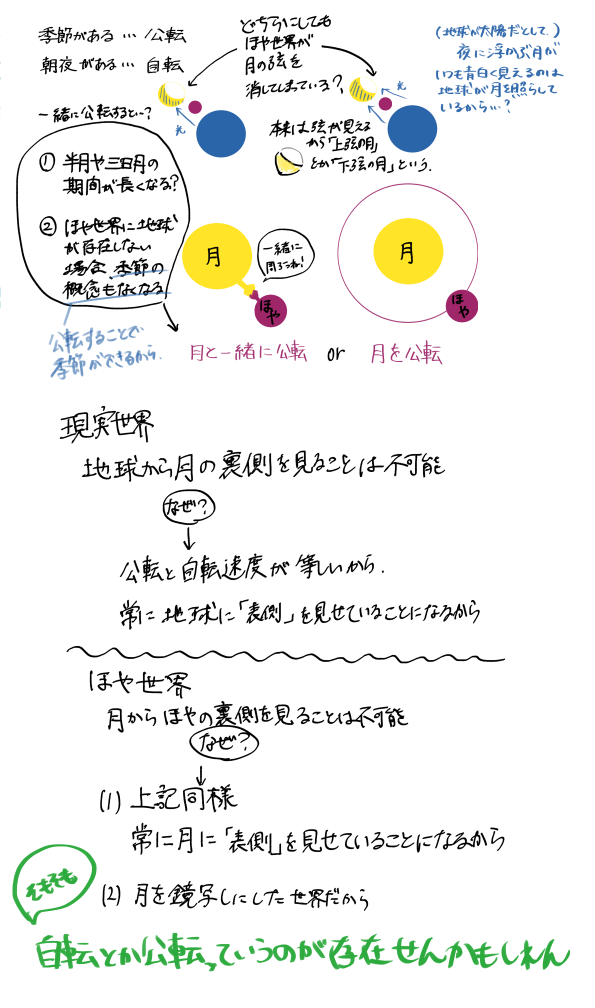 季節がある… 公転
朝夜がある… 自転
どちらにしても
ほや世界が
月の弦を
消してしまっている?
(地球が太陽だとして)
夜に浮かぶ月が
いつも青白く見えるのは
地球が月を照らして
いるから…?
光
光
一緒に公転すると…?
① 半月や三日月の
期間が長くなる?
② ほや世界に地球
が存在しない
場合、季節の
概念もなくなる
公転することで
季節ができるから.
本来は弦が見える
から「上弦の月」
とか「下弦の月」という.
月
一緒に
周ろうね!
ほや
月
ほや
月と一緒に公転 or 月を公転
現実世界
地球から月の裏側を見ることは不可能
なぜ?
公転と自転速度が等しいから.
常に地球に「表側」を見せていることになるから
ほや世界
月からほやの裏側を見ることは不可能
なぜ?
(1) 上記同様
常に月に「表側」を見せていることになるから
(2) 月を鏡写しにした世界だから
そもそも
自転とか公転っていうのが存在せんかもしれん